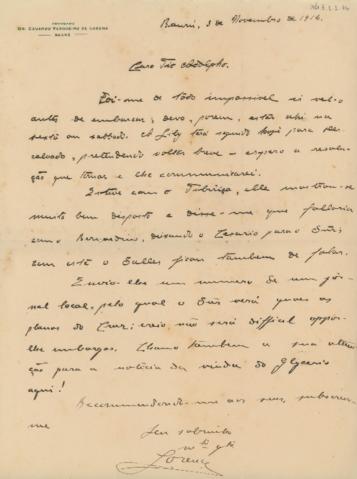 ADVOGADO
DR. EDUARDO VERGUEIRO DE LORENA
BAURÚ
Baurú, 3 de Novembro de 1916.
Caro Tio Adolpho.
Foi-me de todo impossivel ir vel-o
antes de embarcar, devo, porem, estar ahi na
sexta ou sabbado. A Lily terá seguido hoje para
calvado, pretendendo voltar breve – espero a resolu-
ção que tomar e lhe communicarei.
Estive com o Tibiriça, elle mostrou-se
muito bem disposto e disse-me que fallaria
com o Bernardino, deixando o Cesario para o Snr,
com este o Salles ficou tambem de falar.
Envio-lhe um numero de um jor-
nal local, pelo qual o Snr verá quaes os
planos do Cruz; creio não será difficil oppor-
lhe embargos. Chamo tambem a sua atten-
ção para a noticia da vinda do Glycerio
aqui!
Recommendando-me aos seus, subscrevo-
me
Seu sobrinho
mto gto
Lorena